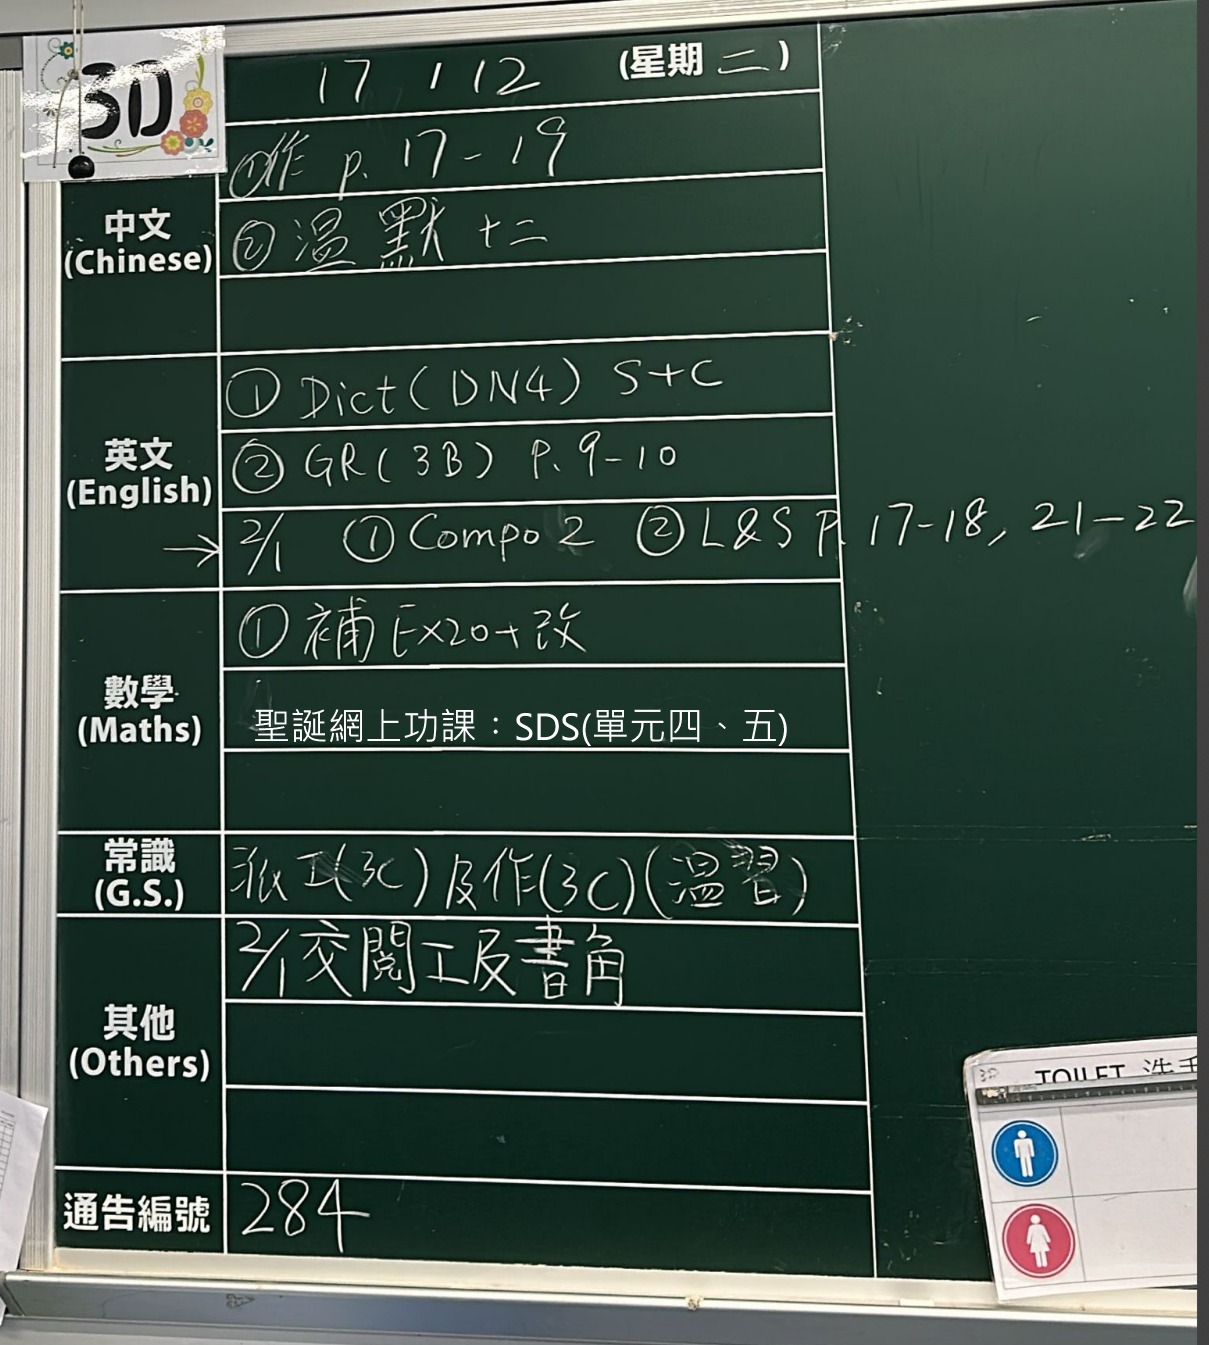 3D
17 / 12 (星期 二)
中文
(Chinese)
①作 p. 17-19
② 溫 默 十二
英文
(English)
① Dict ( DN4 ) S+C
② GR ( 3B ) P. 9-10
→ 2/1 ① Compo 2 ② L&S P. 17-18, 21-22
數學
(Maths)
① 補 Ex20+改
聖誕網上功課：SDS(單元四、五)
常識
(G.S.)
派工(3C)及作(3C)(溫習)
其他
(Others)
2/1交閱工及書角
通告編號
284
3D
TOILET 洗手